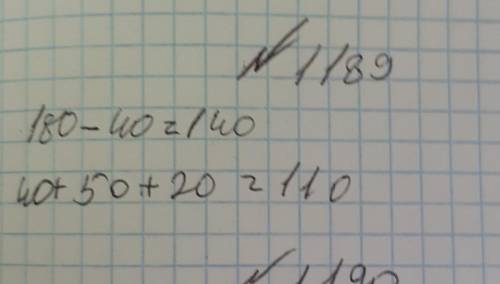 № 1189
180-40=140
40+50+20=110
№ 1190